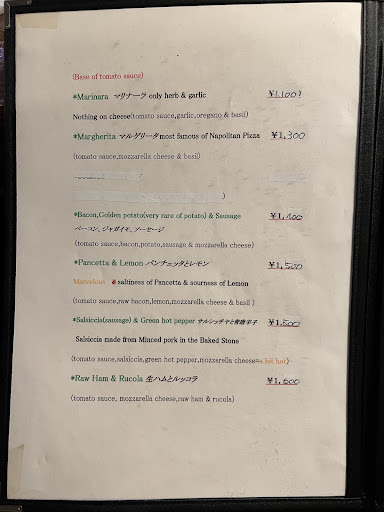 (Base of tomato sauce)
*Marinara マリナーラ only herb & garlic ¥1,100
Nothing on cheese(tomato sauce,garlic,oregano & basil)
*Margherita マルゲリータ most famous of Napolitan Pizza ¥1,300
(tomato sauce,mozzarella cheese & basil)
*Bacon,Golden potato(very rare of potato) & Sausage ¥1,400
ベーコン、ジャガイモ、ソーセージ
(tomato sauce,bacon,potato,sausage & mozzarella cheese)
*Pancetta & Lemon パンチェッタとレモン ¥1,500
Marvelous saltiness of Pancetta & sourness of Lemon
(tomato sauce,raw bacon,lemon,mozzarella cheese & basil )
*Salsiccia(sausage) & Green hot pepper サルシッチャと青唐辛子 ¥1,500
Salsiccia made from Minced pork in the Baked Stone
(tomato sauce,salsiccia,green hot pepper,mozzarella cheese=a bit hot)
*Raw Ham & Rucola 生ハムとルッコラ ¥1,600
(tomato sauce, mozzarella cheese,raw ham & rucola)